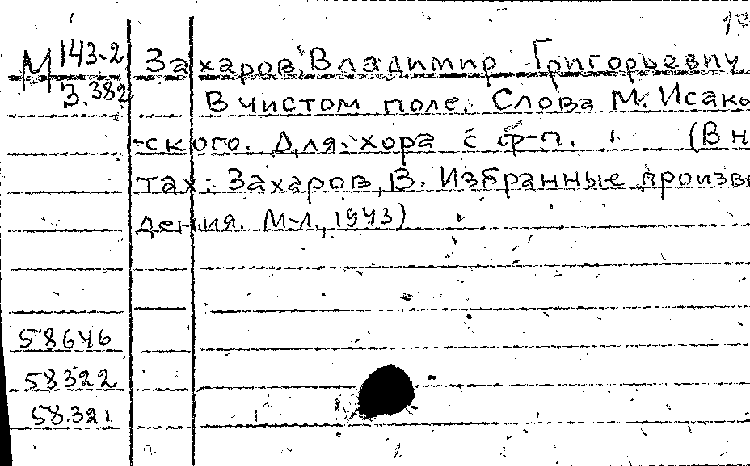 М 143-2
З.382
Захаров, Владимир Григорьевич
В чистом поле. Слова М. Исако
-ского. Для хора с ф-п. (В н
тах: Захаров, В. Избранные произв
дения. М-Л., 1943)
58646
58322
58.321